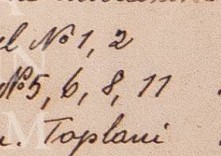 el № 1, 2
№ 5, 6, 8, 11
. Toplani